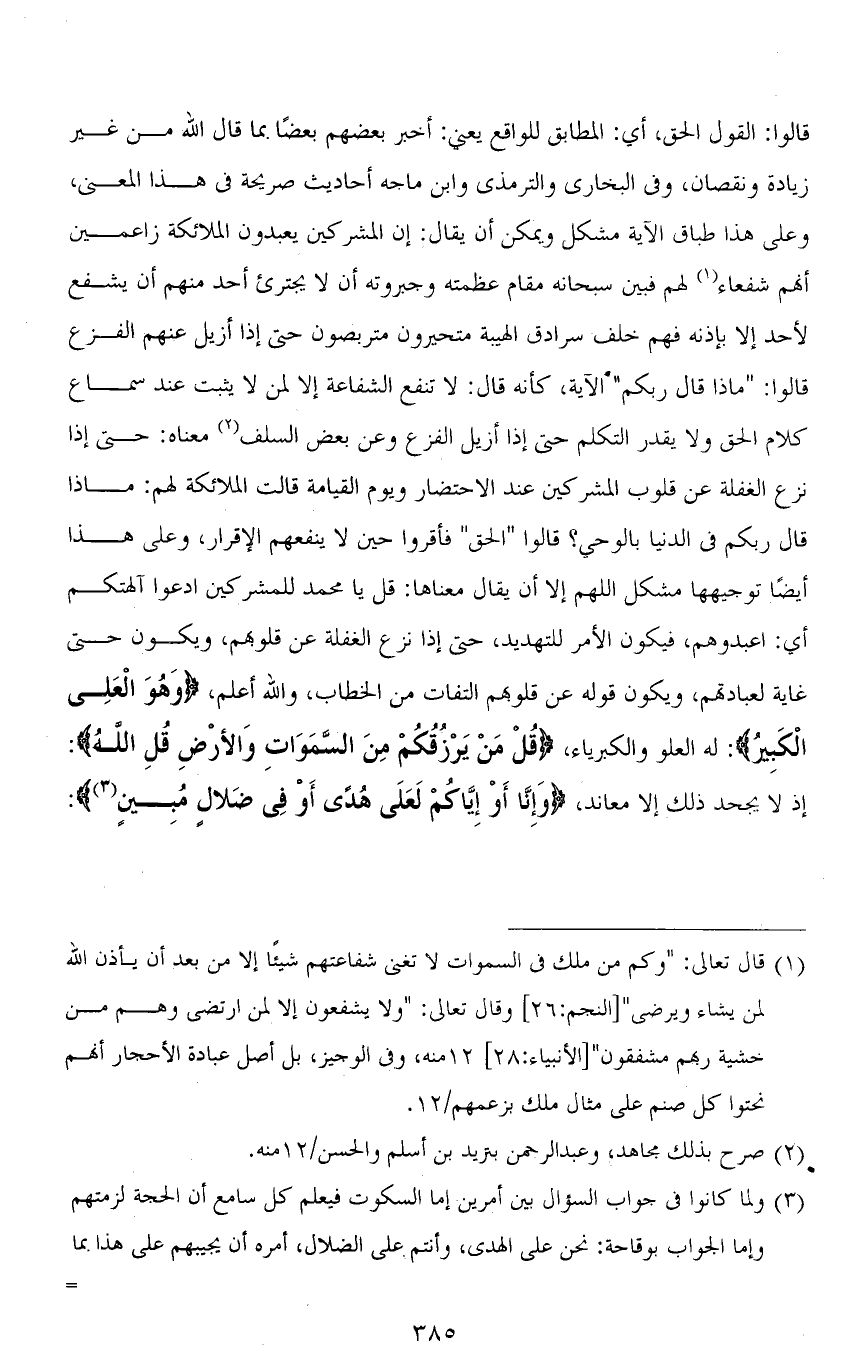 قالوا: القول الحق، أي: المطابق للواقع يعني: أخبر بعضهم بعضًا بما قال الله من غير
زيادة ونقصان، وفى البخارى والترمذى وابن ماجه أحاديث صريحة فى هذا المعنى،
وعلى هذا طباق الآية مشكل ويمكن أن يقال: إن المشركين يعبدون الملائكة زاعمين
أنهم شفعاء(١) لهم فبين سبحانه مقام عظمته وجبروته أن لا يجترئ أحد منهم أن يشفع
لأحد إلا بإذنه فهم خلف سرادق الهيبة متحيرون متربصون حتى إذا أزيل عنهم الفزع
قالوا: "ماذا قال ربكم" الآية، كأنه قال: لا تنفع الشفاعة إلا لمن لا يثبت عند سماع
كلام الحق ولا يقدر التكلم حتى إذا أزيل الفزع وعن بعض السلف(٢) معناه: حتى إذا
نزع الغفلة عن قلوب المشركين عند الاحتضار ويوم القيامة قالت الملائكة لهم: ماذا
قال ربكم فى الدنيا بالوحي؟ قالوا "الحق" فأقروا حين لا ينفعهم الإقرار، وعلى هذا
أيضًا توجيهها مشكل اللهم إلا أن يقال معناها: قل يا محمد للمشركين ادعوا آلهتكم
أي: اعبدوهم، فيكون الأمر للتهديد، حتى إذا نزع الغفلة عن قلوبهم، ويكون حتى
غاية لعبادتهم، ويكون قوله عن قلوبهم التفات من الخطاب، والله أعلم، ﴿وَهُوَ الْعَلِى
الْكَبِيرُ﴾: له العلو والكبرياء، ﴿قُلْ مَنْ يَرْزُقُكُمْ مِنَ السَّمَوَاتِ وَالأَرْضِ قُلِ اللَّهُ﴾:
إذ لا يجحد ذلك إلا معاند، ﴿وَإِنَّا أَوْ إِيَّاكُمْ لَعَلَى هُدًى أَوْ فِى ضَلالٍ مُبِينٍ(٣)﴾:
(١) قال تعالى: "وكم من ملك فى السموات لا تغنى شفاعتهم شيئًا إلا من بعد أن يأذن الله
لمن يشاء ويرضى"[النجم:٢٦] وقال تعالى: "ولا يشفعون إلا لمن ارتضى وهم من
خشية ربهم مشفقون"[الأنبياء:٢٨] ١٢منه، وفى الوجيز، بل أصل عبادة الأحجار أنهم
نحتوا كل صنم على مثال ملك بزعمهم/١٢.
(٢) صرح بذلك مجاهد، وعبدالرحمن بتريد بن أسلم والحسن/١٢منه.
(٣) ولما كانوا فى جواب السؤال بين أمرين إما السكوت فيعلم كل سامع أن الحجة لزمتهم
وإما الجواب بوقاحة: نحن على الهدى، وأنتم على الضلال، أمره أن يجيبهم على هذا بما
=
٣٨٥